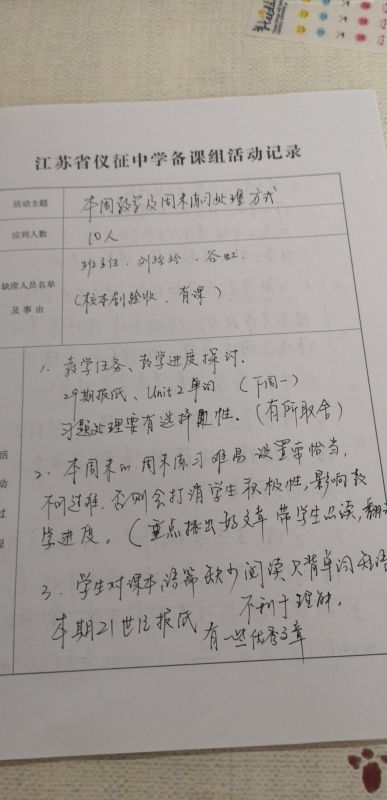 江苏省仪征中学备课组活动记录
活动主题
本周教学及周末练习处理方式
应到人数
10人
缺席人员名单
及事由
班主任、刘玲玲、谷虹.
(校本剧验收、有课)
活
动
过
程
1、教学任务、教学进度探讨.
29期报纸、Unit 2 单词 (下周一)
习题处理要有选择性。(有所取舍)
2、本周末的周末练习难易设置要恰当,
不可过难.否则会打消学生积极性,影响教
学进度。(重点挑出好文章带学生品读,翻
3、学生对课本语篇缺少阅读只背单词短语
不利于理解。
本期21世纪报纸有一些优秀文章